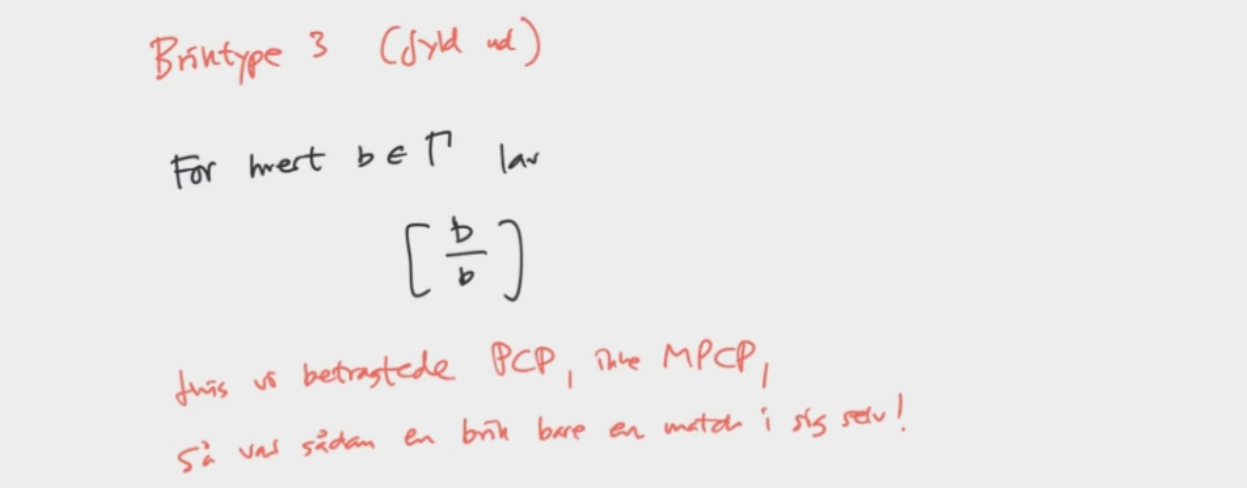 Briktype 3 (fyld ud)
For hvert b ∈ Γ lav
[ b / b ]
hvis vi betragtede PCP, ikke MPCP,
så var sådan en brik bare en match i sig selv!